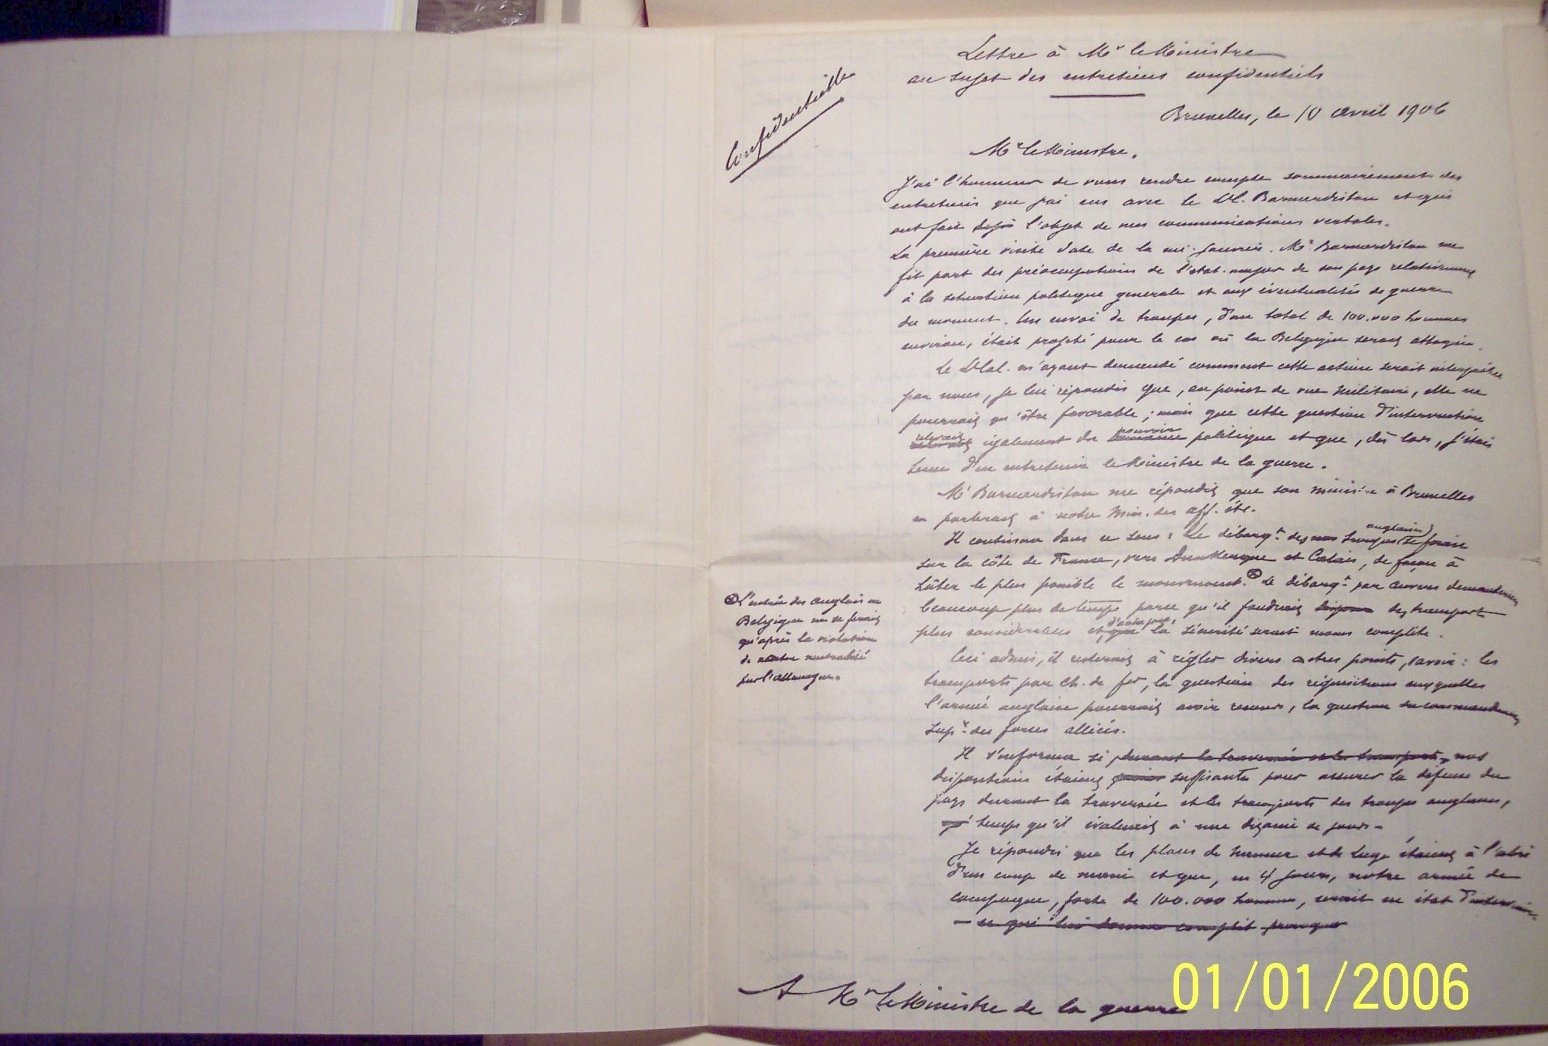 Lettre à Mr le Ministre
au sujet des entretiens confidentiels
Confidentielle
Bruxelles, le 10 avril 1906
Mr le Ministre,
J'ai l'honneur de vous rendre compte sommairement des
entretiens que j'ai eus avec le Lt Cl. Barnardiston et qui
ont fait déjà l'objet de mes communications verbales.
La première visite date de la mi-janvier. Mr Barnardiston me
fit part des préoccupations de l'état-major de son pays relativement
à la situation politique générale et aux éventualités de guerre
du moment. Un envoi de troupes, d'un total de 100.000 hommes
environ, était projeté pour le cas où la Belgique serait attaquée.
Le Lt Col. m'ayant demandé comment cette action serait interprétée
par nous, je lui répondis que, au point de vue militaire, elle ne
pourrait qu'être favorable ; mais que cette question d'intervention
relevait également du pouvoir politique et que, dès lors, j'étais
tenu d'en entretenir le Ministre de la guerre.
Mr Barnardiston me répondit que son ministre à Bruxelles
en parlerait à notre Min. des aff. étr.
Il continua dans ce sens : Le débarqt des troupes anglaises se ferait
sur la côte de France, vers Dunkerque et Calais, de façon à
hâter le plus possible le mouvement. ⊗ Le débarqt par Anvers demanderait
beaucoup plus de temps parce qu'il faudrait des transports
plus considérables et d'autre part la sécurité serait moins complète.
⊗ L'entrée des anglais en
Belgique ne se ferait
qu'après la violation
de notre neutralité
par l'allemagne.
Ceci admis, il resterait à régler divers autres points, savoir : les
transports par ch. de fer, la question des réquisitions auxquelles
l'armée anglaise pourrait avoir recours, la question du commandement
supr des forces alliées.
Il s'informa si durant la traversée et les transports, nos
dispositions étaient suffisantes pour assurer la défense du
pays durant la traversée et les transports des troupes anglaises,
temps qu'il évaluait à une dizaine de jours.
Je répondis que les places de Namur et de Liège étaient à l'abri
d'un coup de main et que, en 4 jours, notre armée de
campagne, forte de 100.000 hommes, serait en état d'intervenir
— ce qui lui donna complet
A Mr le Ministre de la guerre
01/01/2006